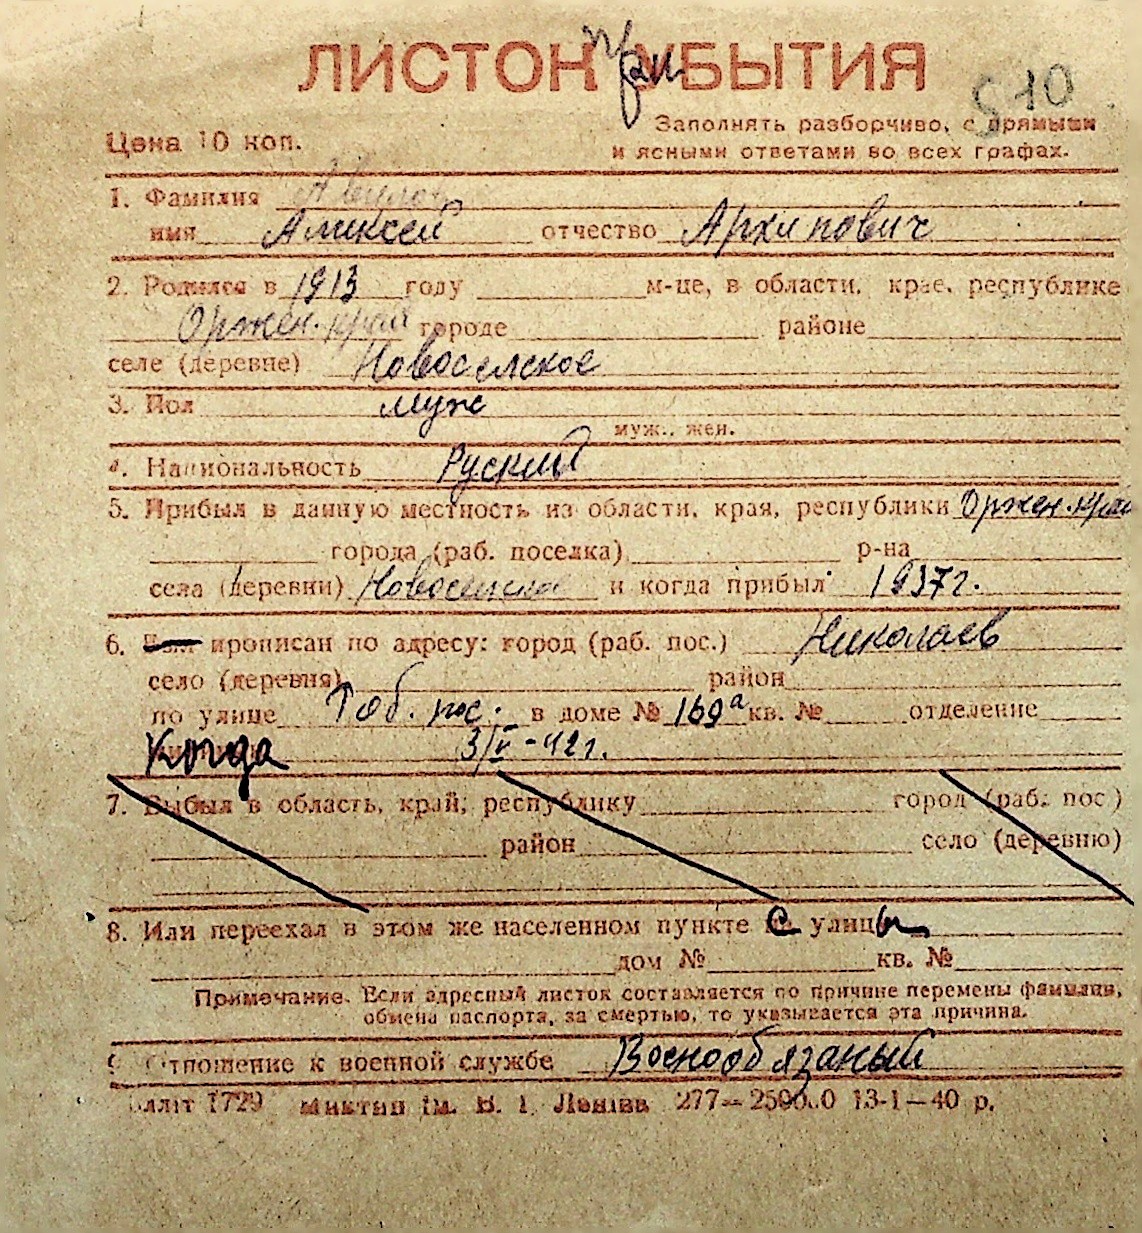 ЛИСТОК УБЫТИЯ
при
510
Цена 10 коп.
Заполнять разборчиво, с прямыми
и ясными ответами во всех графах.
1. Фамилия
имя Алексей отчество Архипович
2. Родился в 1913 году м-це, в области, крае, республике
Оржен. край городе районе
селе (деревне) Новоселское
3. Пол муж
муж., жен.
4. Национальность Руский
5. Прибыл в данную местность из области, края, республики Оржен. край
города (раб. поселка) р-на
села (деревни) Новоселское и когда прибыл 1937 г.
6. Был прописан по адресу: город (раб. пос.) Николаев
село (деревня) район
по улице Тоб. пос. в доме № 169а кв. № отделение
Когда 3/V-42 г.
7. Выбыл в область, край, республику город (раб. пос)
район село (деревню)
8. Или переехал в этом же населенном пункте с улицы
дом № кв. №
Примечание. Если адресный листок составляется по причине перемены фамилии,
обмена паспорта, за смертью, то указывается эта причина.
9 Отношение к военной службе Военообязаный
1729 ім. В. І. Леніна 277— 13-1—40 р.